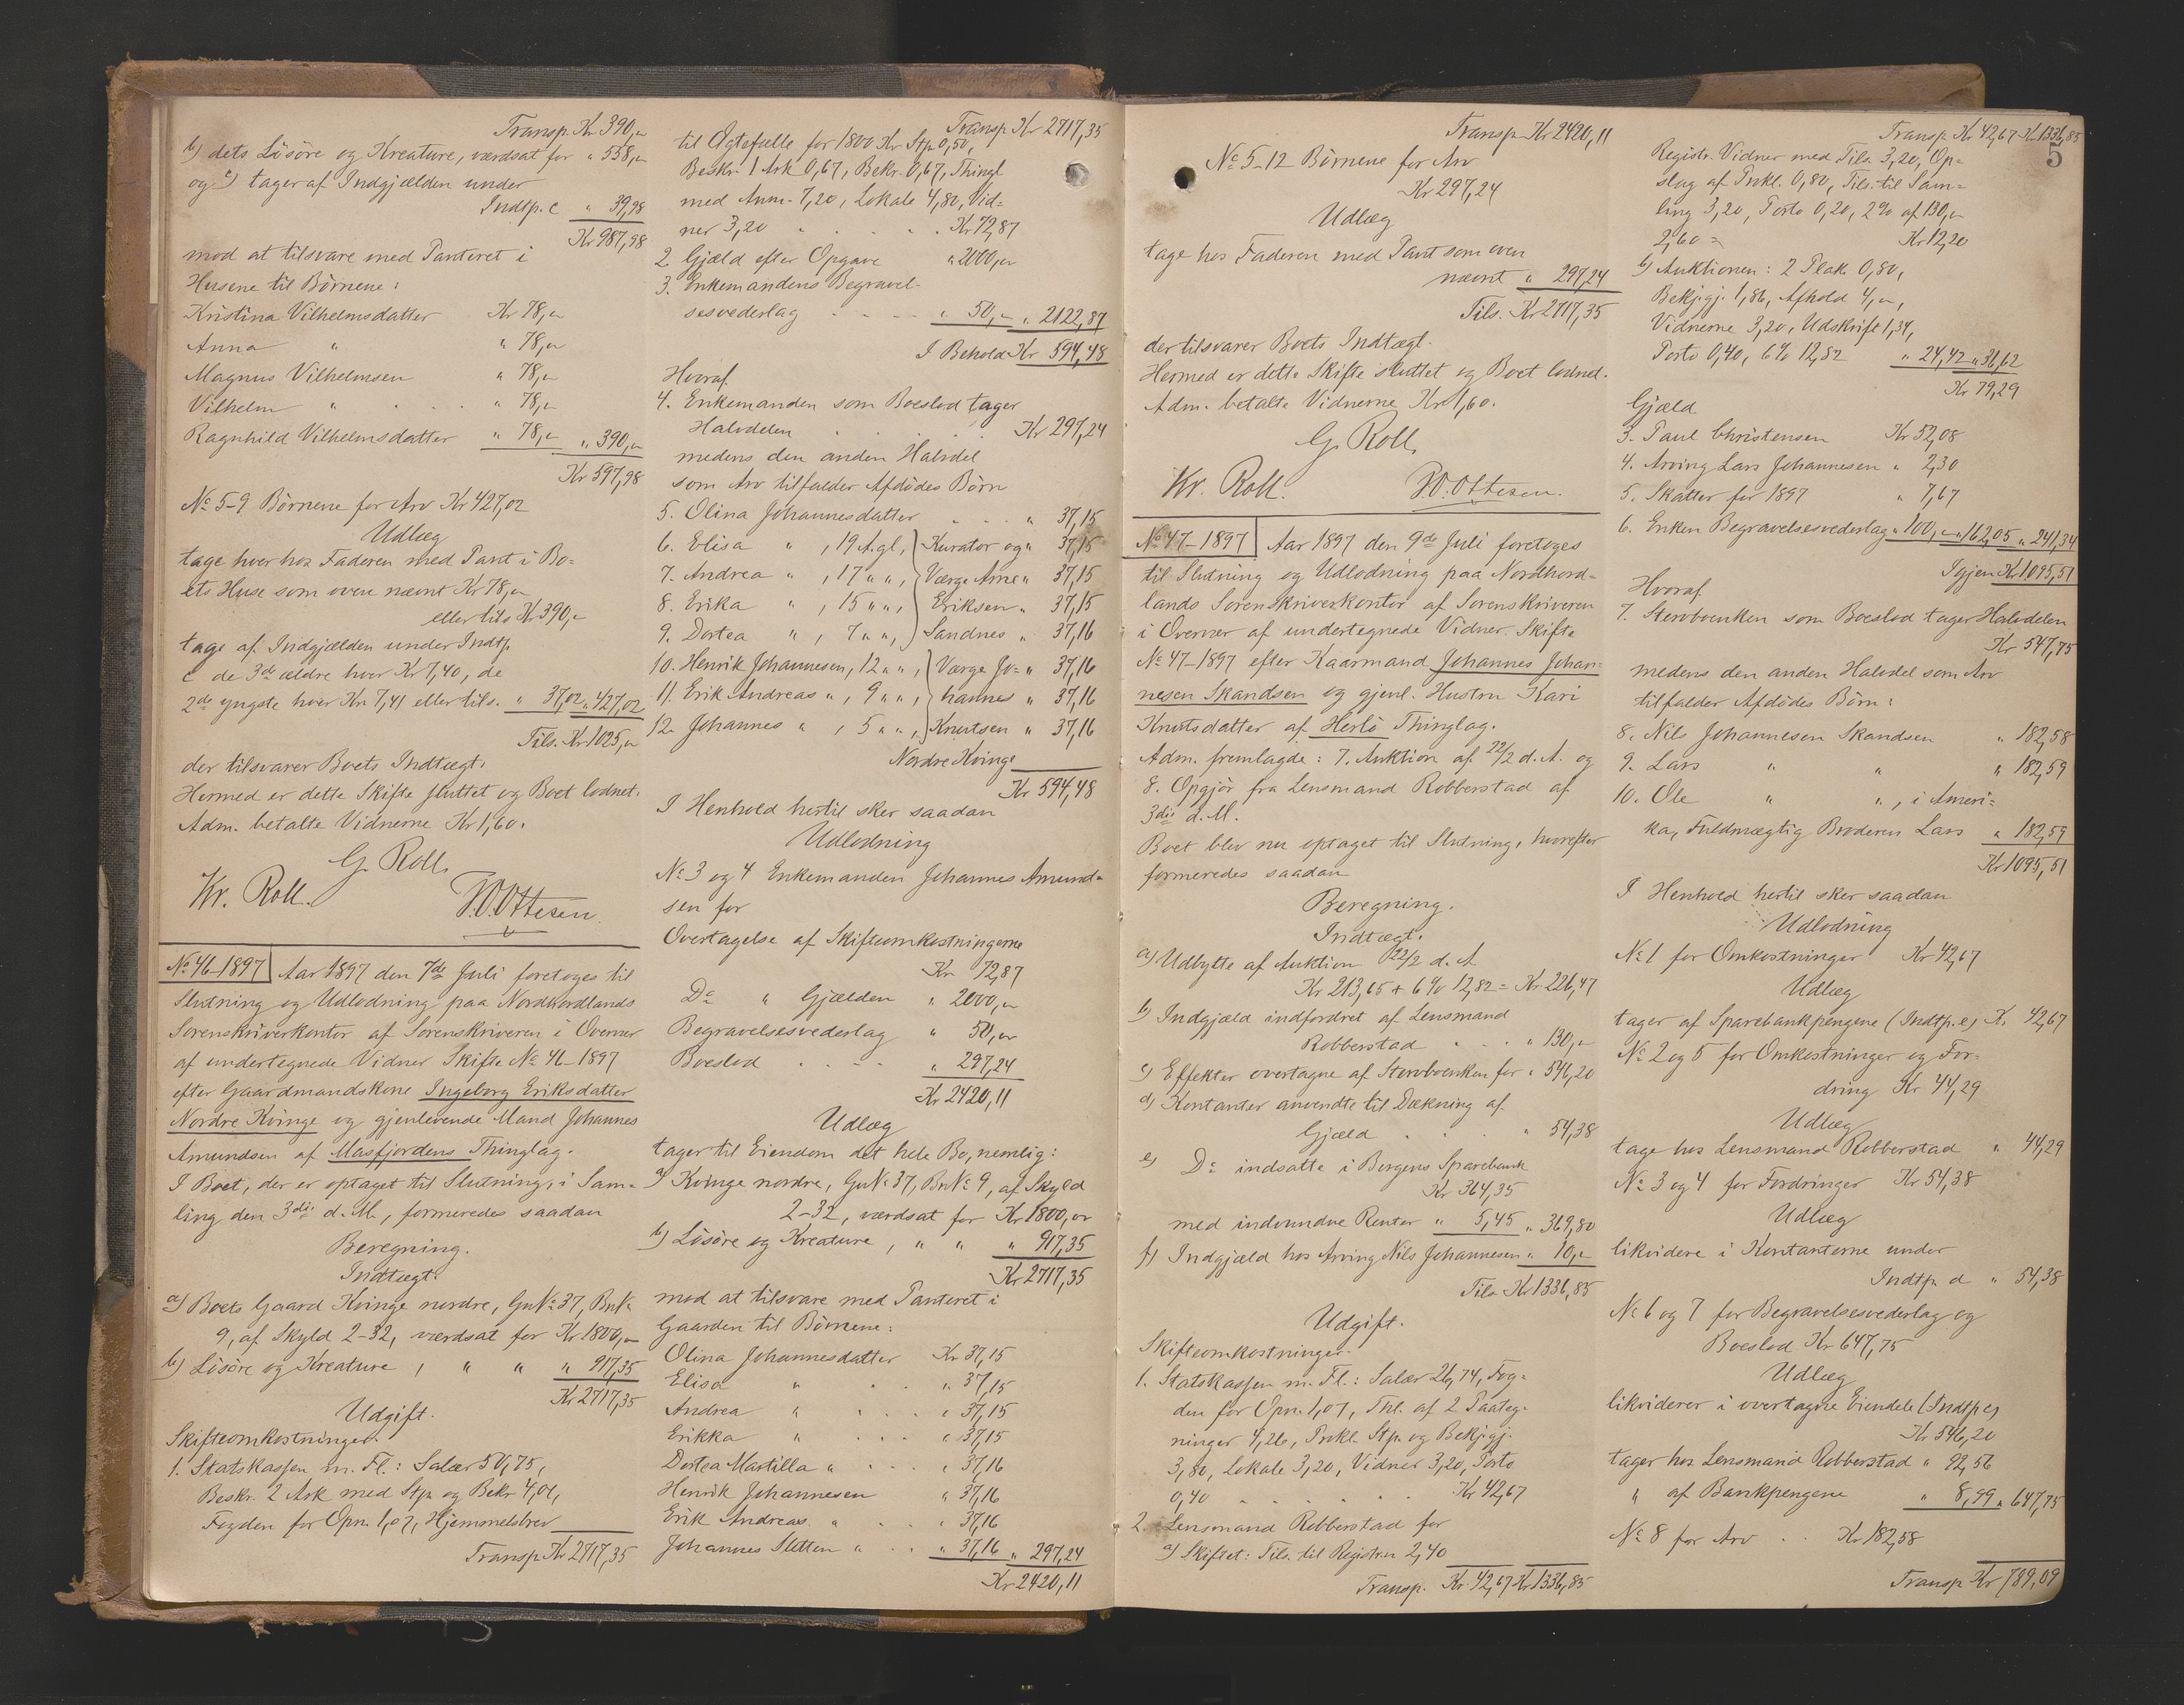 Transp. Kr 390,"
b) dets Lösöre og Kreature, værdsat for " 558,"
og c) tager af Indgjælden under
Indtp. c " 39,98
Kr 987,98
mod at tilsvare med Panteret i
Husene til Börnene:
Kristina Vilhelmsdatter Kr 78,"
Anna " " 78,"
Magnus Vilhelmsen " 78,"
Vilhelm " . . . " 78,"
Ragnhild Vilhelmsdatter " 78,"  " 390,"
Kr 597,98
No 5-9 Börnene for Arv Kr 427,02
Udlæg
tage hver hos Faderen med Pant i Bo=
ets Huse som oven nævnt Kr 78,"
eller tils Kr 390,"
tage af Indgjælden under Indtp.
c de 3de ældre hver Kr 7,40, de
2de yngste hver Kr 7,41 eller tils. " 37,02 " 427,02
Tils. Kr 1025,"
der tilsvarer Boets Indtægt.
Hermed er dette Skifte sluttet og Boet lodnet.
Adm. betalte Vidnerne Kr 1,60.
G. Roll.
Kr. Roll. W. Ottesen.
No 46-1897 Aar 1897 den 7de Juli foretoges til
Slutning og Udlodning paa Nordhordlands
Sorenskriverkontor af Sorenskriveren i Overvær
af undertegnede Vidner Skifte No 46-1897
efter Gaardmandskone Ingeborg Eriksdatter
Nordre Kvinge og gjenlevende Mand Johannes
Amundsen af Masfjordens Thinglag.
I Boet, der er optaget til Slutning, i Sam=
ling den 3die d. M., formeredes saadan
Beregning.
Indtægt.
a) Boets Gaard Kvinge nordre, GnNo 37, BnNo
9, af Skyld 2-32, værdsat for Kr 1800,"
b) Lösöre og Kreature, " " " 917,35
Kr 2717,35
Udgift.
Skifteomkostninger.
1. Statskassen m. Fl.: Salær 50,75,
Beskr. 2 Ark med Stp. og Bekr 4,01,
Fogden for Opn. 1,07, Hjemmelsbrev
Transp. Kr 2717,35
Transp. Kr 2717,35
til Ægtefælle for 1800 Kr Stp. 0,50,
Beskr. 1 Ark 0,67, Bekr. 0,67, Thingl
med Anm. 7,20, Lokale 4,80, Vid=
ner 3,20 . . . . Kr 72,87
2. Gjæld efter Opgave " 2000,"
3. Enkemandens Begravel-
sesvederlag . . . . " 50,"  " 2122,87
I Behold Kr 594,48
Hvoraf
4. Enkemanden som Boeslod tager
Halvdelen . . . . Kr 297,24
medens den anden Halvdel
som Arv tilfalder Afdödes Börn
5. Olina Johannesdatter . . . " 37,15
6. Elisa ", 19 A. gl., Kurator og " 37,15
7. Andrea ", 17 " ", Værge Arne " 37,15
8. Erika ", 15 " ", Eriksen " 37,15
9. Dortea ", 7 " ", Sandnes " 37,16
10. Henrik Johannesen, 12 " ", Værge Jo= " 37,16
11. Erik Andreas ", 9 " ", hannes " 37,16
12. Johannes ", 5 " ", Knutsen " 37,16
Nordre Kvinge
Kr 594,48
I Henhold hertil sker saadan
Udlodning
No 3 og 4 Enkemanden Johannes Amund=
sen for
Overtagelse af Skifteomkostningerne
Kr 72,87
Do " Gjælden " 2000,"
Begravelsesvederlag " 50,"
Boeslod . . . . " 297,24
Kr 2420,11
Udlæg
tager til Eiendom det hele Bo, nemlig:
a) Kvinge nordre, GnNo 37, BnNo 9, af Skyld
2-32, værdsat for Kr 1800,"
b) Lösöre og Kreature, " " " 917,35
Kr 2717,35
mod at tilsvare med Panteret i
Gaarden til Börnene:
Olina Johannesdatter Kr 37,15
Elisa " . . " 37,15
Andrea " . . . " 37,15
Erikka " . . . " 37,15
Dortea Martilla " . . . " 37,16
Henrik Johannesen " 37,16
Erik Andreas " . . " 37,16
Johannes " . . " 37,16 " 297,24
Kr 2420,11
Transp. Kr 2420,11
No 5-12 Börnene for Arv
Kr 297,24
Udlæg
tage hos Faderen med Pant som oven
nævnt " 297,24
Tils. Kr 2717,35
der tilsvarer Boets Indtægt.
Hermed er dette Skifte sluttet og Boet lodnet.
Adm. betalte Vidnerne Kr 1,60.
G. Roll.
Kr. Roll. W. Ottesen.
No 47-1897 Aar 1897 den 9de Juli foretoges
til Slutning og Udlodning paa Nordhord=
lands Sorenskriverkontor af Sorenskriveren
i Overvær af undertegnede Vidner Skifte
No 47-1897 efter Kaarmand Johannes Johan=
nesen Skandsen og gjenl. Hustru Kari
Knutsdatter af Herlö Thinglag.
Adm. fremlagde: 7. Auktion af 22/2 d. A. og
8. Opgjör fra Lensmand Robberstad af
3die d. M.
Boet blev nu optaget til Slutning, hvorefter
formeredes saadan
Beregning.
Indtægt.
a) Udbytte af Auktion 22/2 d. A.
Kr 213,65 + 6% 12,82 = Kr 226,47
b) Indgjæld indfordret af Lensmand
Robberstad . . . " 130,"
c) Effekter overtagne af Stervboenken for " 546,20
d) Kontanter anvendte til Dækning af
Gjæld . . . " 54,38
e) Do indsatte i Bergens Sparebank
Kr 364,35
med indvundne Renter " 5,45 " 369,80
f) Indgjæld hos Arving Nils Johannesen " 10,"
Tils. Kr 1336,85
Udgift.
Skifteomkostninger.
1. Statskassen m. Fl.: Salær 26,74, Fog=
den for Opn. 1,07, Thl. af 2 Paateg=
ninger 4,26, Prokl. Stp. og Bekjgj.
3,80, Lokale 3,20, Vidner 3,20, Porto
0,40 . . . . . Kr 42,67
2. Lensmand Robberstad for
a) Skiftet: Tils. til Registr.n 2,40
Transp. Kr 42,67 Kr 1336,85
5
Transp. Kr 42,67 Kr 1336,85
Registr. Vidner med Tils. 3,20, Op=
slag af Prokl. 0,80, Tils. til Sam=
ling 3,20, Porto 0,20, 2% af 130,"
2,60 = Kr 12,20
b) Auktionen: 2 Plak. 0,80,
Bekjgj. 1,86, Afhold 4,",
Vidnerne 3,20, Udskrift 1,34,
Porto 0,40, 6% 12,82 " 24,42 " 36,62
Kr 79,29
Gjæld
3. Paul Christensen Kr 52,08
4. Arving Lars Johannesen " 2,30
5. Skatter for 1897 " 7,67
6. Enken Begravelsesvederlag " 100," " 162,05 " 241,34
Igjen Kr 1095,51
Hvoraf
7. Stervboenken som Boeslod tager Halvdelen
Kr 547,75
medens den anden Halvdel som Arv
tilfalder Afdödes Börn:
8. Nils Johannesen Skandsen " 182,58
9. Lars " " " 182,59
10. Ole " ", i Ameri=
ka, Fuldmægtig Broderen Lars " 182,59
Kr 1095,51
I Henhold hertil sker saadan
Udlodning
No 1 for Omkostninger Kr 42,67
Udlæg
tager af Sparebankpengene (Indtp. e) Kr. 42,67
No 2 og 5 for Omkostninger og For=
dring Kr 44,29
Udlæg
tage hos Lensmand Robberstad " 44,29
No 3 og 4 for Fordringer Kr 54,38
Udlæg
likvidere i Kontanterne under
Indtp. d " 54,38
No 6 og 7 for Begravelsesvederlag og
Boeslod Kr 647,75
Udlæg
likviderer i overtagne Eiendele (Indtp c)
Kr 546,20
tager hos Lensmand Robberstad " 92,56
" af Bankpengene " 8,99 " 647,75
No 8 for Arv . . Kr 182,58
Transp. Kr 789,09